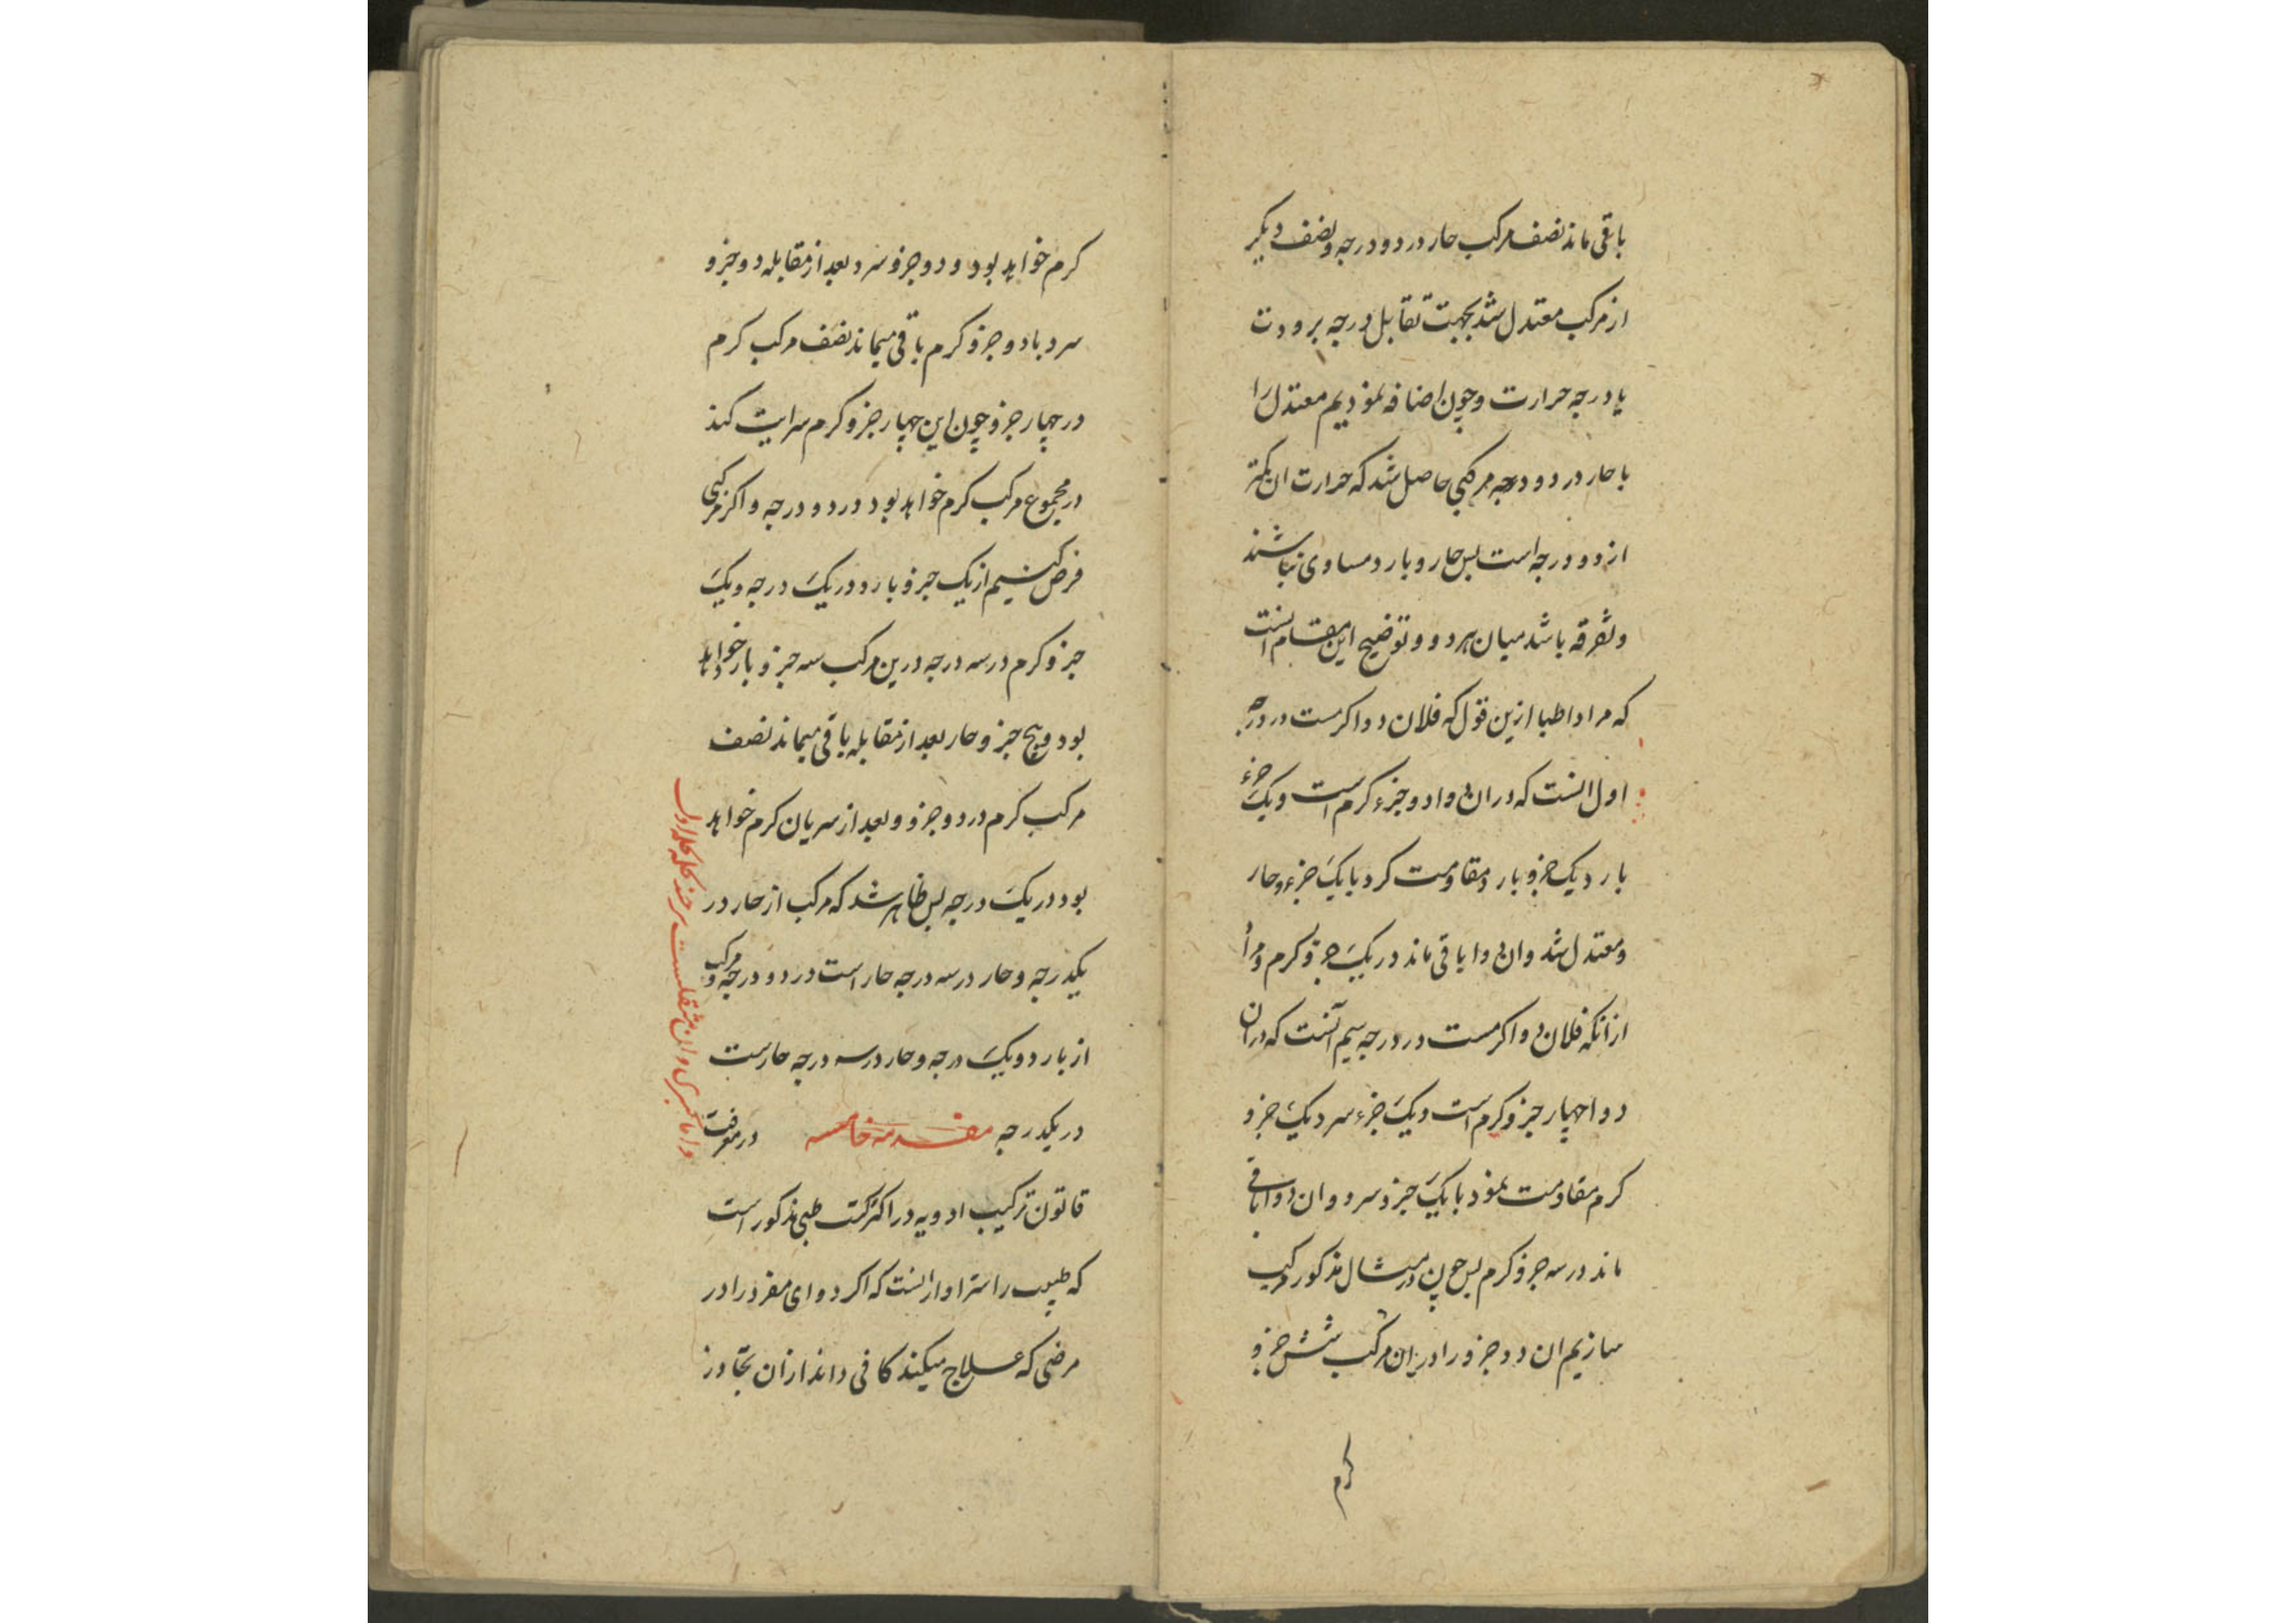 باقی ماند نصف مرکب حار در دو درجه و نصف دیکر
از مرکب معتدل شد بجهت تقابل درجه برودت
با درجه حرارت و چون اضافه نمودیم معتدل را
با حار در دو درجه مرکبی حاصل شد که حرارت ان کمتر
از دو درجه است پس حار و بارد مساوی نباشند
و تفرقه باشد میان هر دو و توضیح این مقام انست
که مراد اطبا ازین قول که فلان دوا کرمست در درجه
اول انست که دران دوا دو جزء کرم است و یک جزء
بارد یک جزو بارد مقاومت کرد با یک جزء و حار
و معتدل شد وان دوا باقی ماند در یک جزو کرم و مراد
از انکه فلان دوا کرمست در درجه سیم آنست که دران
دوا چهار جزو کرم است و یک جزء سرد یک جزو
کرم مقاومت نمود با یک جزو سرد و ان دوا باقی
ماند در سه جزو کرم پس چون در مثال مذکور مرکب
سازیم ان دو جزو را دران مرکب شش جزو
کرم
کرم خواهد بود و دو جزو سرد بعد از مقابله دو جزو
سرد با دو جزو کرم باقی میماند نصف مرکب کرم
در چهار جزو چون این چهار جزو کرم سرایت کند
در مجموع مرکب کرم خواهد بود در دو درجه و اکر مرکبی
فرض کنیم از یک جزو بارد در یک درجه و یک
جزو کرم در سه درجه درین مرکب سه جزو بارد خواهد
بود و پنج جزو حار بعد از مقابله باقی میماند نصف
مرکب کرم در دو جزو و بعد از سریان کرم خواهد
بود در یک درجه پس ظاهر شد که مرکب از حار در
یکدرجه و حار در سه درجه حار است در دو درجه و مرکب
از بارد و یک درجه و حار در سه درجه حارست
در یکدرجه مقدمه خامسه در معرفت
قانون ترکیب ادویه در اکثر کتب طبی مذکور است
که طبیب را سزاوار انست که اکر دوای مفرد را در
مرضی که علاج میکند کافی داند از ان تجاوز